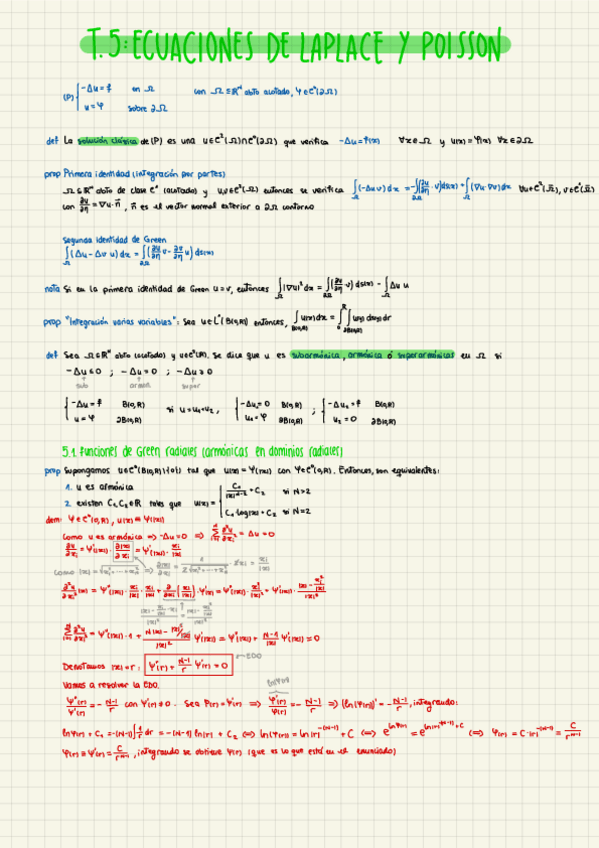 T.5: ECUACIONES DE LAPLACE Y POISSON
(P) { -Δu = f en Ω con Ω ⊆ ℝᴺ abto acotado, φ ∈ C⁰(∂Ω)
u = φ sobre ∂Ω
def La solución clásica de (P) es una u ∈ C²(Ω)∩C⁰(∂Ω) que verifica -Δu = f(x) ∀x ∈ Ω y u(x) = φ(x) ∀x ∈ ∂Ω
prop Primera identidad (integración por partes)
Ω ⊆ ℝᴺ abto de clase C¹ (acotado) y u, v ∈ C²(Ω) entonces se verifica ∫_Ω (-Δu v) dx = -∫_∂Ω (∂u/∂η · v) ds(x) + ∫_Ω (∇u · ∇v) dx
con ∂u/∂η = ∇u · n⃗, n⃗ es el vector normal exterior a ∂Ω contorno
segunda identidad de Green
∫_Ω (Δu - Δv u) dx = ∫_∂Ω (∂u/∂η v - ∂v/∂η u) ds(x)
nota Si en la primera identidad de Green u = v, entonces ∫_Ω |∇u|² dx = ∫_∂Ω (∂u/∂η v) ds(x) - ∫_Ω Δu u
prop "Integración varias variables": Sea u ∈ L¹(B(0,R)) entonces, ∫_B(0,R) u(x) dx = ∫₀ᴿ ∫_∂B(0,R) u(y) ds(y) dr
def Sea Ω ⊆ ℝᴺ abto (acotado) y u ∈ C²(Ω). Se dice que u es subarmónica, armónica ó superarmónicas en Ω si
-Δu ≤ 0 ; -Δu = 0 ; -Δu ≥ 0
sub armon super
{ -Δu = f B(0,R) si u = u₁ + u₂, { -Δu₁ = 0 B(0,R) ; { -Δu₂ = f B(0,R)
u = φ ∂B(0,R) u₁ = φ ∂B(0,R) u₂ = 0 ∂B(0,R)
5.1. Funciones de Green radiales (armónicas en dominios radiales)
prop Supongamos u ∈ C²(B(0,R)\{0}) tal que u(x) = Ψ(|x|) con Ψ ∈ C²(0,R). Entonces, son equivalentes:
1. u es armónica
2. existen C₁, C₂ ∈ ℝ tales que u(x) = { C₁/|x|ᴺ⁻² + C₂ si N > 2
C₁ log|x| + C₂ si N = 2
dem: Ψ ∈ C²(0,R), u(x) = Ψ(|x|)
Como u es armónica ⇒ -Δu = 0 ⇒ Σ ∂²u/∂xᵢ² = Δu = 0
∂u/∂xᵢ = Ψ'(|x|) · ∂|x|/∂xᵢ = Ψ'(|x|) · xᵢ/|x|
como |x| = √(x₁² + ··· + xₙ²) ⇒ ∂|x|/∂xᵢ = 1/(2√(x₁² + ··· + xₙ²)) · 2xᵢ = xᵢ/|x|
∂²u/∂xᵢ² (x) = Ψ''(|x|) · xᵢ/|x| · xᵢ/|x| + ∂/∂xᵢ (xᵢ/|x|) · Ψ'(x) = Ψ''(|x|) · xᵢ²/|x|² + Ψ'(|x|) · (|x| - xᵢ²/|x|)/|x|²
(|x| - xᵢ/|x| · xᵢ)/|x|² = (|x| - xᵢ²/|x|)/|x|²
Σ ∂²u/∂xᵢ² = Ψ''(|x|) · 1 + (N|x| - |x|²/|x|)/|x|² Ψ'(|x|) = Ψ''(|x|) + (N-1)/|x| Ψ'(|x|) = 0
Denotamos |x| = r: Ψ''(r) + (N-1)/r Ψ'(r) = 0 → EDO
Vamos a resolver la EDO. (ln(φ(r)))'
Ψ''(r)/Ψ'(r) = -(N-1)/r con Ψ'(r) ≠ 0. Sea φ(r) = Ψ'(r) ⇒ φ'(r)/φ(r) = -(N-1)/r ⇒ (ln(φ(r)))' = -(N-1)/r, integrando:
ln φ(r) + C₁ = -(N-1) ∫ 1/r dr = -(N-1) ln(r) + C₂ ⇔ ln(φ(r)) = ln(r)^-(N-1) + C ⇔ e^ln φ(r) = e^(ln(r)^-(N-1) + C) ⇔ φ(r) = C · r^-(N-1) = C/rᴺ⁻¹
φ(r) = Ψ'(r) = C/rᴺ⁻¹, integrando se obtiene Ψ(r) (que es lo que está en el enunciado)